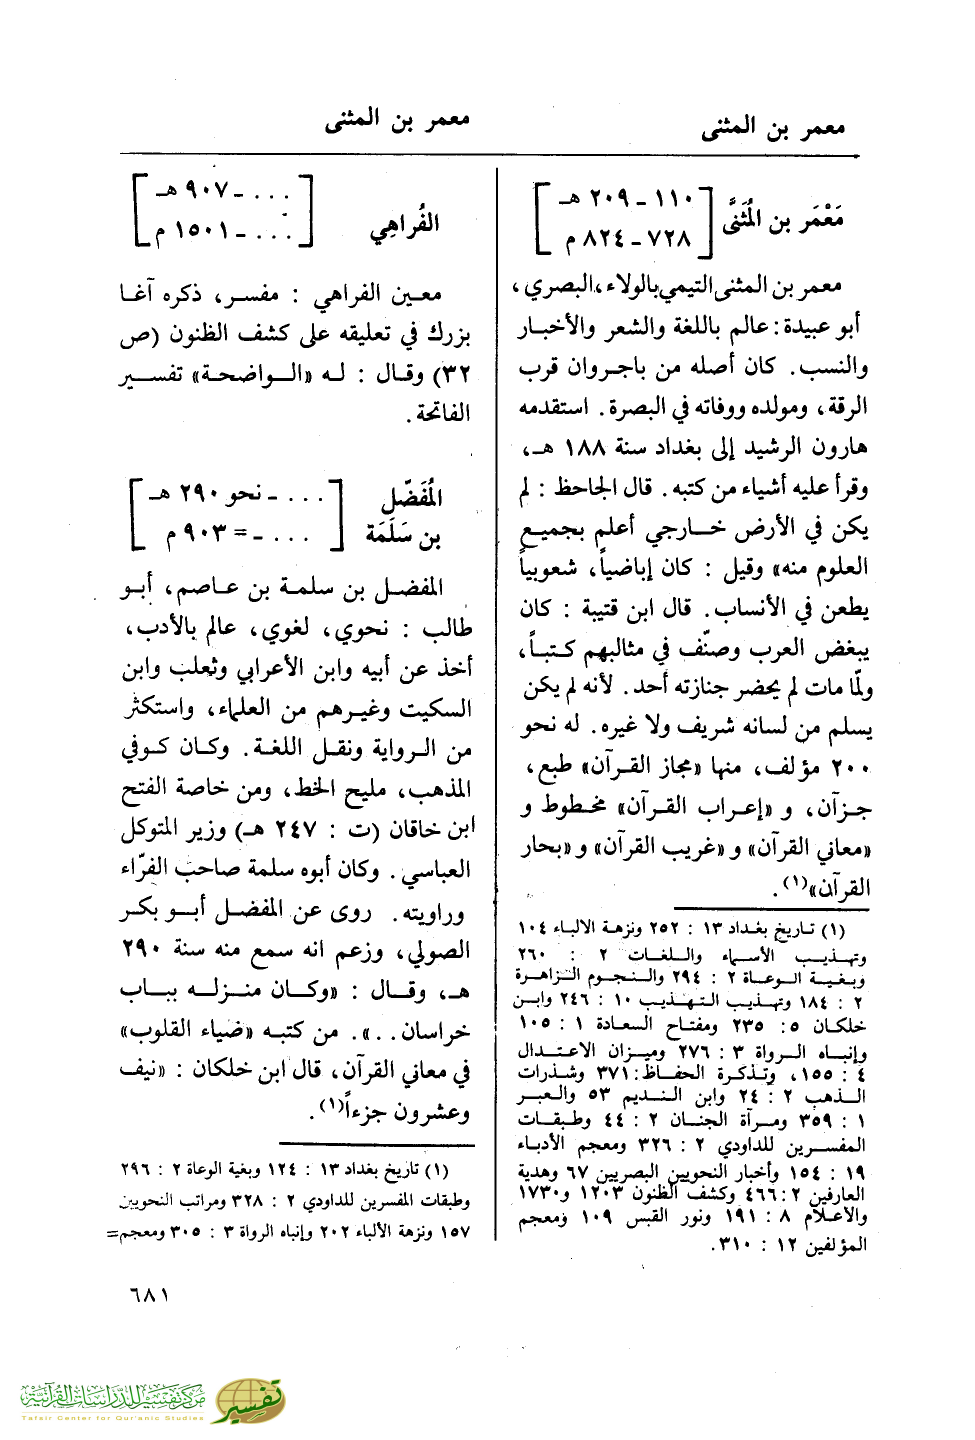 معمر بن المثنى
معمر بن المثنى
مَعْمَر بن المُثَنَّى [ ١١٠ ـ ٢٠٩ هـ
٧٢٨ ـ ٨٢٤ م ]
معمر بن المثنى التيمي بالولاء، البصري،
أبو عبيدة : عالم باللغة والشعر والأخبار
والنسب . كان أصله من باجروان قرب
الرقة، ومولده ووفاته في البصرة . استقدمه
هارون الرشيد إلى بغداد سنة ١٨٨ هـ،
وقرأ عليه أشياء من كتبه . قال الجاحظ : لم
يكن في الأرض خارجي أعلم بجميع
العلوم منه» وقيل : كان إباضياً، شعوبياً
يطعن في الأنساب . قال ابن قتيبة : كان
يبغض العرب وصنّف في مثالبهم كتباً،
ولمّا مات لم يحضر جنازته أحد . لأنه لم يكن
يسلم من لسانه شريف ولا غيره . له نحو
٢٠٠ مؤلف، منها «مجاز القرآن» طبع،
جزآن، و «إعراب القرآن» مخطوط و
«معاني القرآن» و «غريب القرآن» و «بحار
القرآن»(١) .
(١) تاريخ بغداد ١٣ : ٢٥٢ ونزهة الالباء ١٠٤
وتهذيب الأسماء واللغات ٢ : ٢٦٠
وبغية الوعاة ٢ : ٢٩٤ والنجوم الزاهرة
٢ : ١٨٤ وتهذيب التهذيب ١٠ : ٢٤٦ وابن
خلكان ٥ : ٢٣٥ ومفتاح السعادة ١ : ١٠٥
وإنباه الرواة ٣ : ٢٧٦ وميزان الاعتدال
٤ : ١٥٥، وتذكرة الحفاظ : ٣٧١ وشذرات
الذهب ٢ : ٢٤ وابن النديم ٥٣ والعبر
١ : ٣٥٩ ومرآة الجنان ٢ : ٤٤ وطبقات
المفسرين للداودي ٢ : ٣٢٦ ومعجم الأدباء
١٩ : ١٥٤ وأخبار النحويين البصريين ٦٧ وهدية
العارفين ٢ : ٤٦٦ وكشف الظنون ١٢٠٣ و١٧٣٠
والاعلام ٨ : ١٩١ ونور القبس ١٠٩ ومعجم
المؤلفين ١٢ : ٣١٠ .
الفُراهِي [ . . . ـ ٩٠٧ هـ
. . . ـ ١٥٠١ م ]
معين الفراهي : مفسر، ذكره آغا
بزرك في تعليقه على كشف الظنون (ص
٣٢) وقال : له «الواضحة» تفسير
الفاتحة .
المُفَضَّل [ . . . ـ نحو ٢٩٠ هـ
بن سَلَمَة . . . ـ = ٩٠٣ م ]
المفضل بن سلمة بن عاصم، أبو
طالب : نحوي، لغوي، عالم بالأدب،
أخذ عن أبيه وابن الأعرابي وثعلب وابن
السكيت وغيرهم من العلماء، واستكثر
من الرواية ونقل اللغة . وكان كوفي
المذهب، مليح الخط، ومن خاصة الفتح
ابن خاقان (ت : ٢٤٧ هـ) وزير المتوكل
العباسي . وكان أبوه سلمة صاحب الفرّاء
وراويته . روى عن المفضل أبو بكر
الصولي، وزعم انه سمع منه سنة ٢٩٠
هـ، وقال : «وكان منزله بباب
خراسان . . .» . من كتبه «ضياء القلوب»
في معاني القرآن، قال ابن خلكان : «نيف
وعشرون جزءاً(١) .
(١) تاريخ بغداد ١٣ : ١٢٤ وبغية الوعاة ٢ : ٢٩٦
وطبقات المفسرين للداودي ٢ : ٣٢٨ ومراتب النحويين
١٥٧ ونزهة الألباء ٢٠٢ وإنباه الرواة ٣ : ٣٠٥ ومعجم=
٦٨١
مركز تفسير للدراسات القرآنية
Tafsir Center for Qur'anic Studies
تفسير